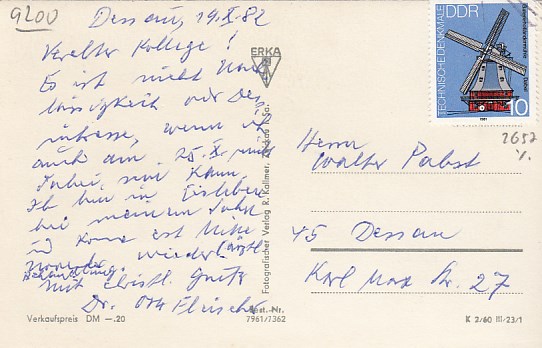 9200
Dessau, 19.X.82
Verehrter Kollege!
Es ist nicht Nach
lässigkeit oder Des
intresse, wenn ich
auch am 25.X. nicht
dabei sein kann.
Ich bin in Eisleben
bei meinem Sohn
und komme erst Mitte
November wieder (ärztl.
Behandlung).
Mit christl. Gruß
Dr. Otto Fleischer
Verkaufspreis DM —.20
ERKA
Fotografischer Verlag R. Kallmer, Zwickau i. Sa.
Best.-Nr.
7961/7362
DDR
TECHNISCHE DENKMALE
10
1981
2652
Herrn
Walter Pabst
45 Dessau
Karl Marx Str. 27
K 2/60 III/23/1